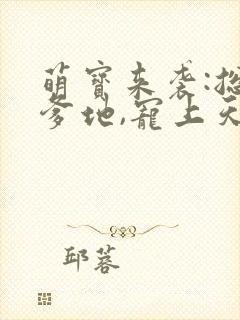 萌宝来袭:总
爹地,宠上天
邱蓉